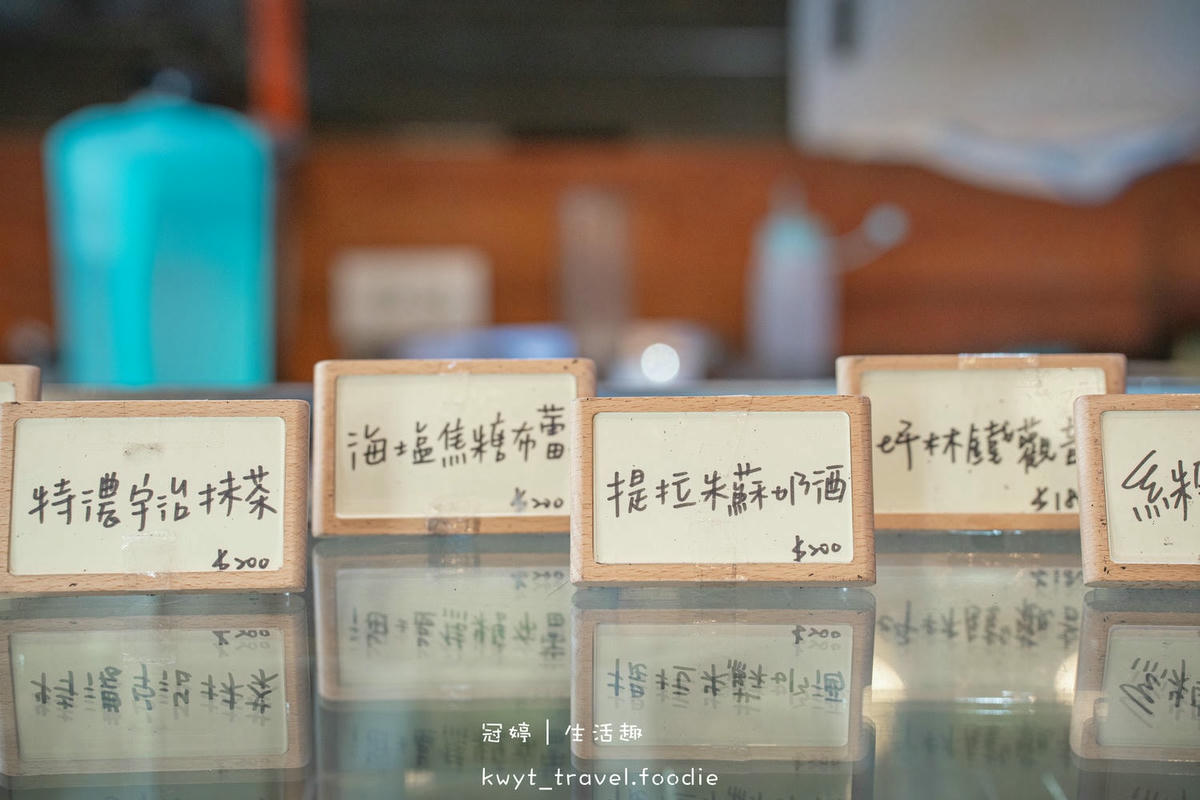 特濃宇治抹茶
$200
海塩焦糖布蕾
$200
提拉朱蘇奶酒
$200
坪林鐵觀音
$18
糸
冠婷 | 生活趣
kwyt_travel.foodie